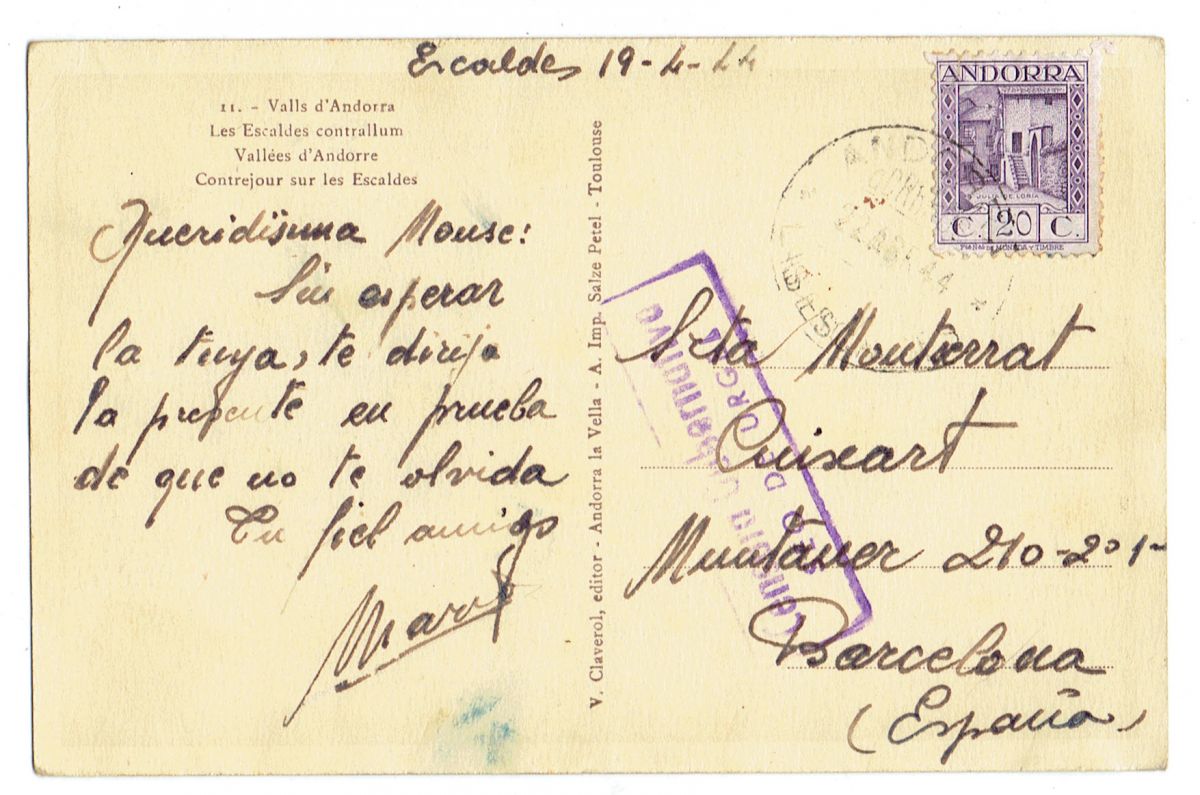 Escaldes 19-4-44
11. - Valls d'Andorra
Les Escaldes contrallum
Vallées d'Andorre
Contrejour sur les Escaldes
Queridísima Monse:
Sin esperar
la tuya, te dirijo
la presente en prueba
de que no te olvida
Tu fiel amigo
V. Claverol, editor - Andorra la Vella - A. Imp. Salze Petel - Toulouse
ANDORRA
JULIA DE LORIA
C. 20 C.
FCA NAL DE MONEDA Y TIMBRE
Censura Gubernativa
SEO DE URGEL
Srta Montserrat
Cuixart
Muntaner 210-2º 1ª
Barcelona
(España)